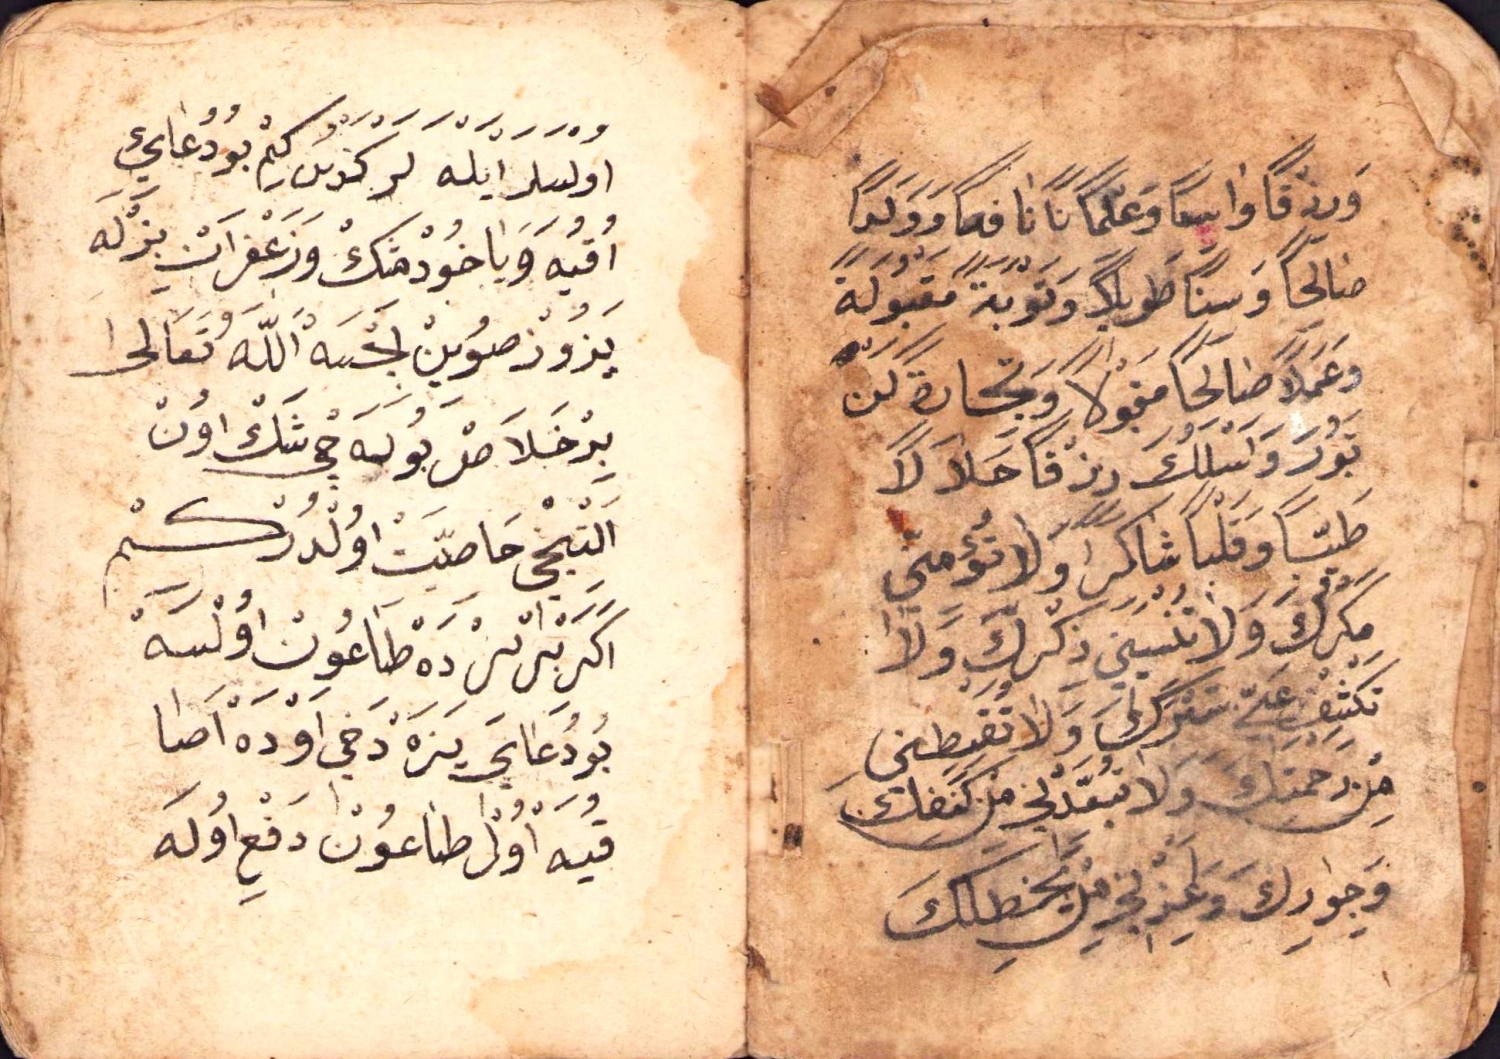 وَرِزْقًا وَاسِعًا وَعِلْمًا نَافِعًا وَوَلَدًا
صَالِحًا وَسِنًّا طَوِيلًا وَتَوْبَةً مَقْبُولَةً
وَعَمَلًا صَالِحًا مَقْبُولًا وَتِجَارَةً لَنْ
تَبُورَ وَاَسْئَلُكَ رِزْقًا حَلَالًا
طَيِّبًا وَقَلْبًا شَاكِرًا وَلَا تُؤْمِنِّي
مَكْرَكَ وَلَا تُنْسِينِي ذِكْرَكَ وَلَا
تَكْشِفْ عَنِّي سَتْرَكَ وَلَا تُقَنِّطْنِي
مِنْ رَحْمَتِكَ وَلَا تُبَعِّدْنِي مِنْ كَنَفِكَ
وَجِوَارِكَ وَاَعِذْنِي مِنْ سَخَطِكَ
اولسلر ايله لر كم بُو دُعَايِ
اُقُيَه وَيَاخُودْ مِسْكْ وَزَعْفَرَانْ يَزْلَه
يَزُوزْ صُويِنْ اِيچْسَه اَللّٰه تَعَالٰى
بِرْ خَلَاصْ بُولَه شَكْ اوُنْ
اَلْتِنْجِي خَاصِيَّتْ اوُلْدُرْكِمْ
اَكَرْ بِرْ يَرْدَه طَاعُونْ اوُلْسَه
بُو دُعَايِ يَزَه دَخِي اَوْدَه اَصَا
قُيَه اُولْ طَاعُونْ دَفْعِ اوُلَه